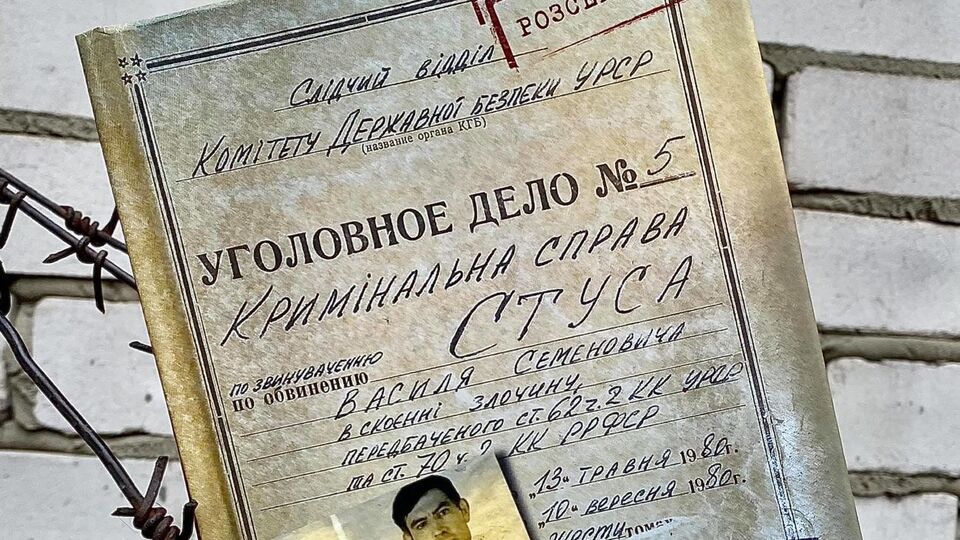 РОЗСЕ
Слідчий відділ
Комітету Державної безпеки УРСР
(название органа КГБ)
УГОЛОВНОЕ ДЕЛО № 5
Кримінальна справа
СТУСА
по звинуваченню
по обвинению
Василя Семеновича
в скоєнні злочину,
передбаченого ст. 62 ч. 2 КК УРСР
та ст. 70 ч. 2 КК РРФСР
„13" травня 1980г.
„10" вересня 1980г.
шести томах